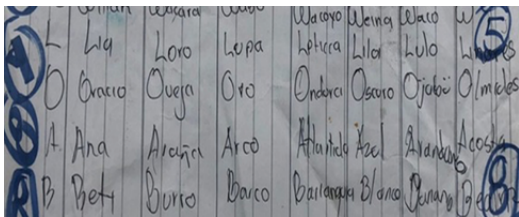 Wacoyo Weina Waco W 5
L Lia Loro Lupa Leticia Lila Lulo
O Oracio Oveja Oro Ondura Oscuro Ojobü Olmicles
A. Ana Araña Arco Atlantida Azul Arandano Acosta
B Beti Burro Barco Blanco Banano 8